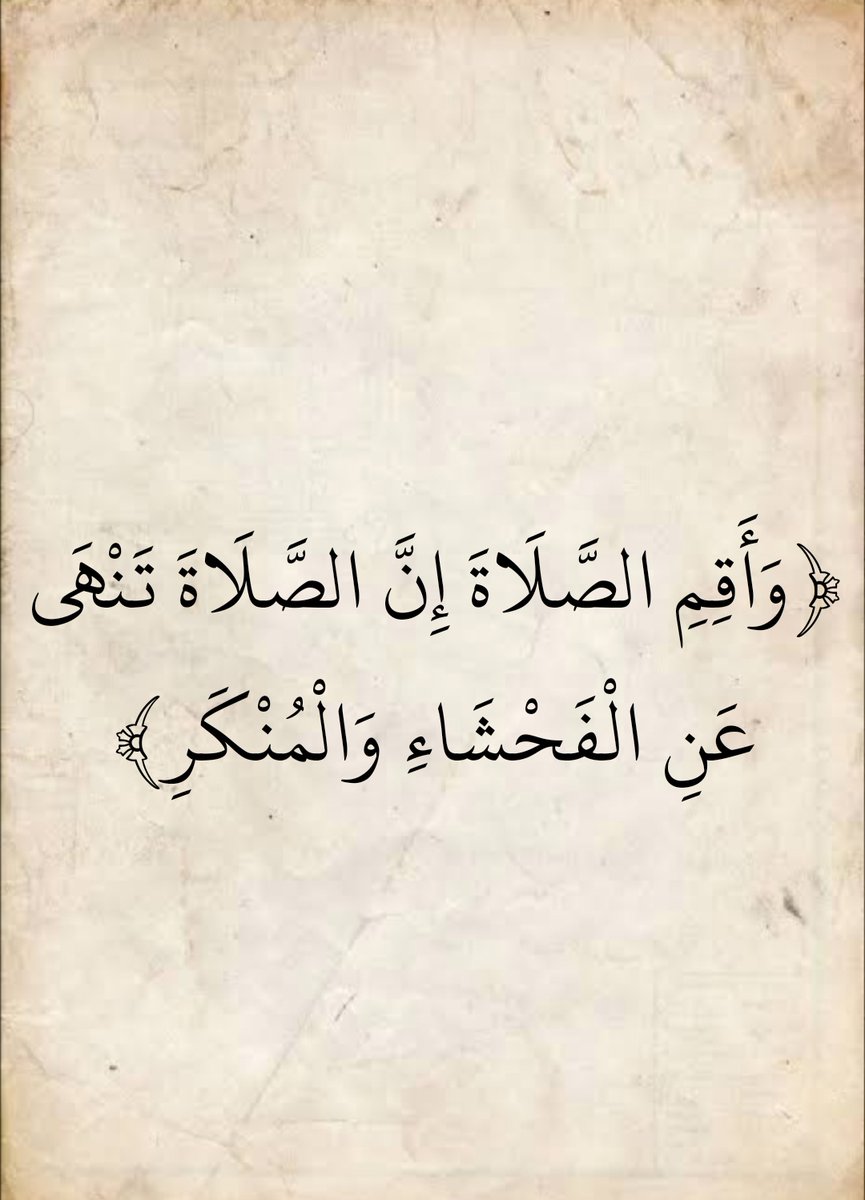 ﴿وَأَقِمِ الصَّلَاةَ إِنَّ الصَّلَاةَ تَنْهَى
عَنِ الْفَحْشَاءِ وَالْمُنْكَرِ﴾